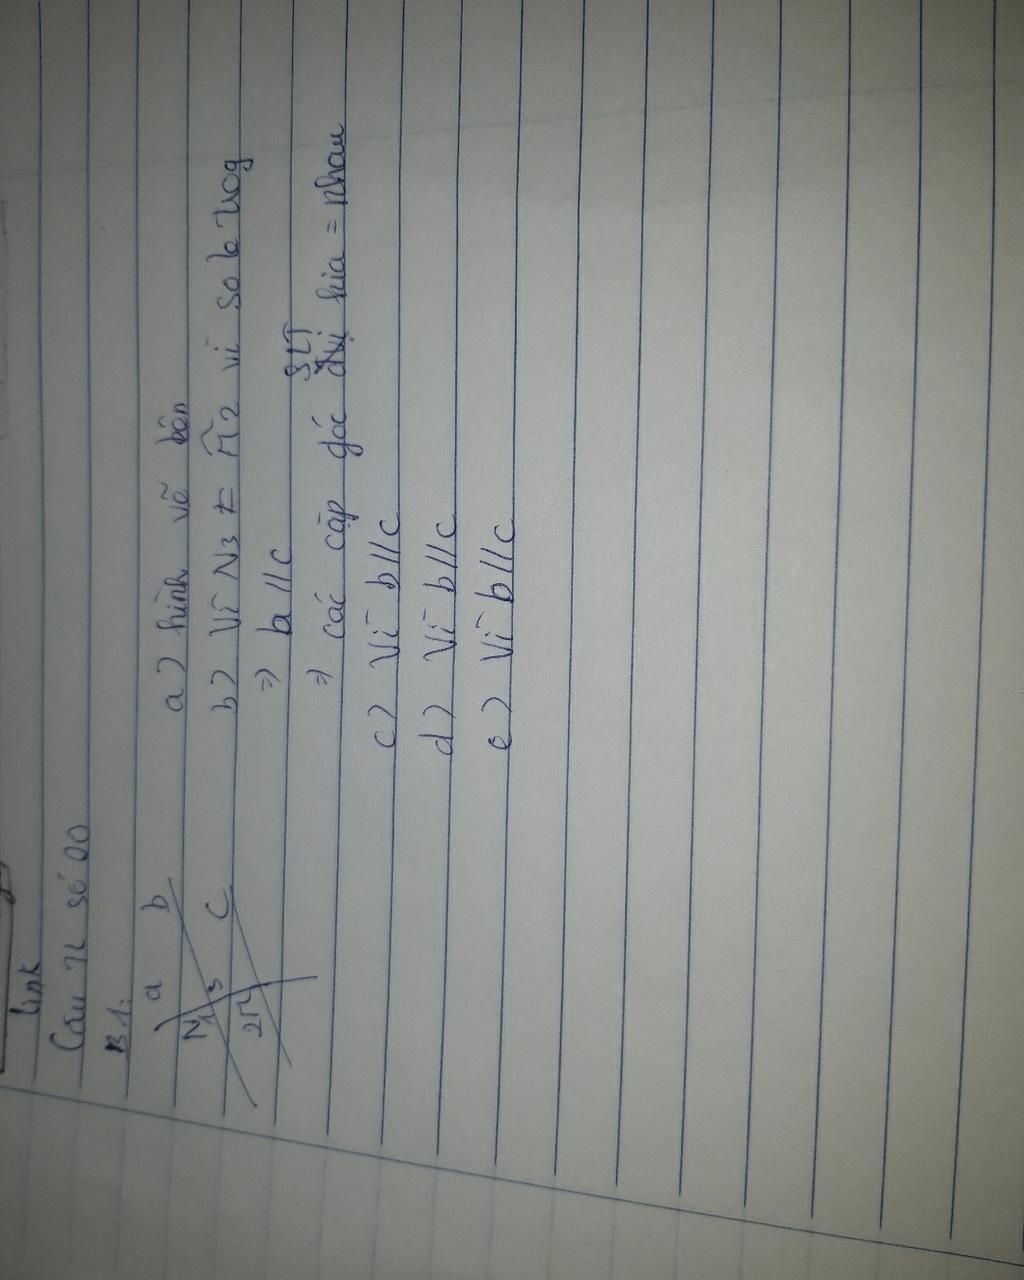 link
Câu TL số 20
B.1:
a b
N1 3 c
2M
a) hình vẽ bên
b) Vì N3 = M̂2 vì so le trog
=) b//c
=) các cặp góc SLT kia = nhau
c) Vì b//c
d) Vì b//c
e) Vì b//c